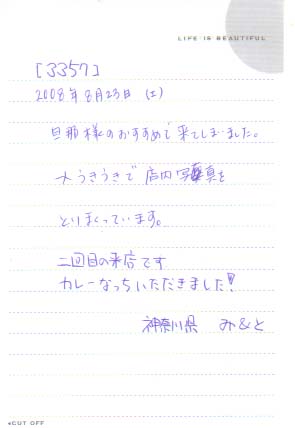 LIFE IS BEAUTIFUL
[3357]
2008年8月23日(土)
旦那様のおすすめで来てしまいました。
大うきうきで店内写真を
とりまくっています。
二回目の来店です
カレーなっちいただきました!!
神奈川県 み&と
CUT OFF